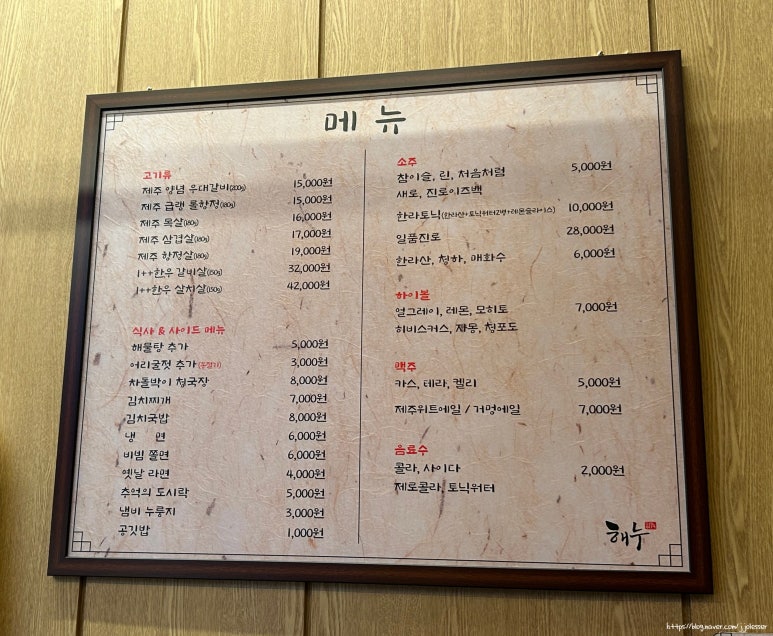 메뉴
고기류
제주 양념 우대갈비(200g) 15,000원
제주 급랭 롤항정(180g) 15,000원
제주 목살(180g) 16,000원
제주 삼겹살(180g) 17,000원
제주 항정살(180g) 19,000원
1++한우 갈비살(150g) 32,000원
1++한우 살치살(150g) 42,000원
식사 & 사이드 메뉴
해물탕 추가 5,000원
어리굴젓 추가 3,000원
차돌박이 청국장 8,000원
김치찌개 7,000원
김치국밥 8,000원
냉 면 6,000원
비빔 쫄면 6,000원
옛날 라면 4,000원
추억의 도시락 5,000원
냄비 누룽지 3,000원
공깃밥 1,000원
소주
참이슬, 린, 처음처럼 5,000원
새로, 진로이즈백
한라토닉(한라산+토닉워터2병+레몬슬라이스) 10,000원
일품진로 28,000원
한라산, 청하, 매화수 6,000원
하이볼
얼그레이, 레몬, 모히토 7,000원
히비스커스, 자몽, 청포도
맥주
카스, 테라, 켈리 5,000원
제주위트에일 / 거멍에일 7,000원
음료수
콜라, 사이다 2,000원
제로콜라, 토닉워터
해누
https://blog.naver.com/j_jolesser